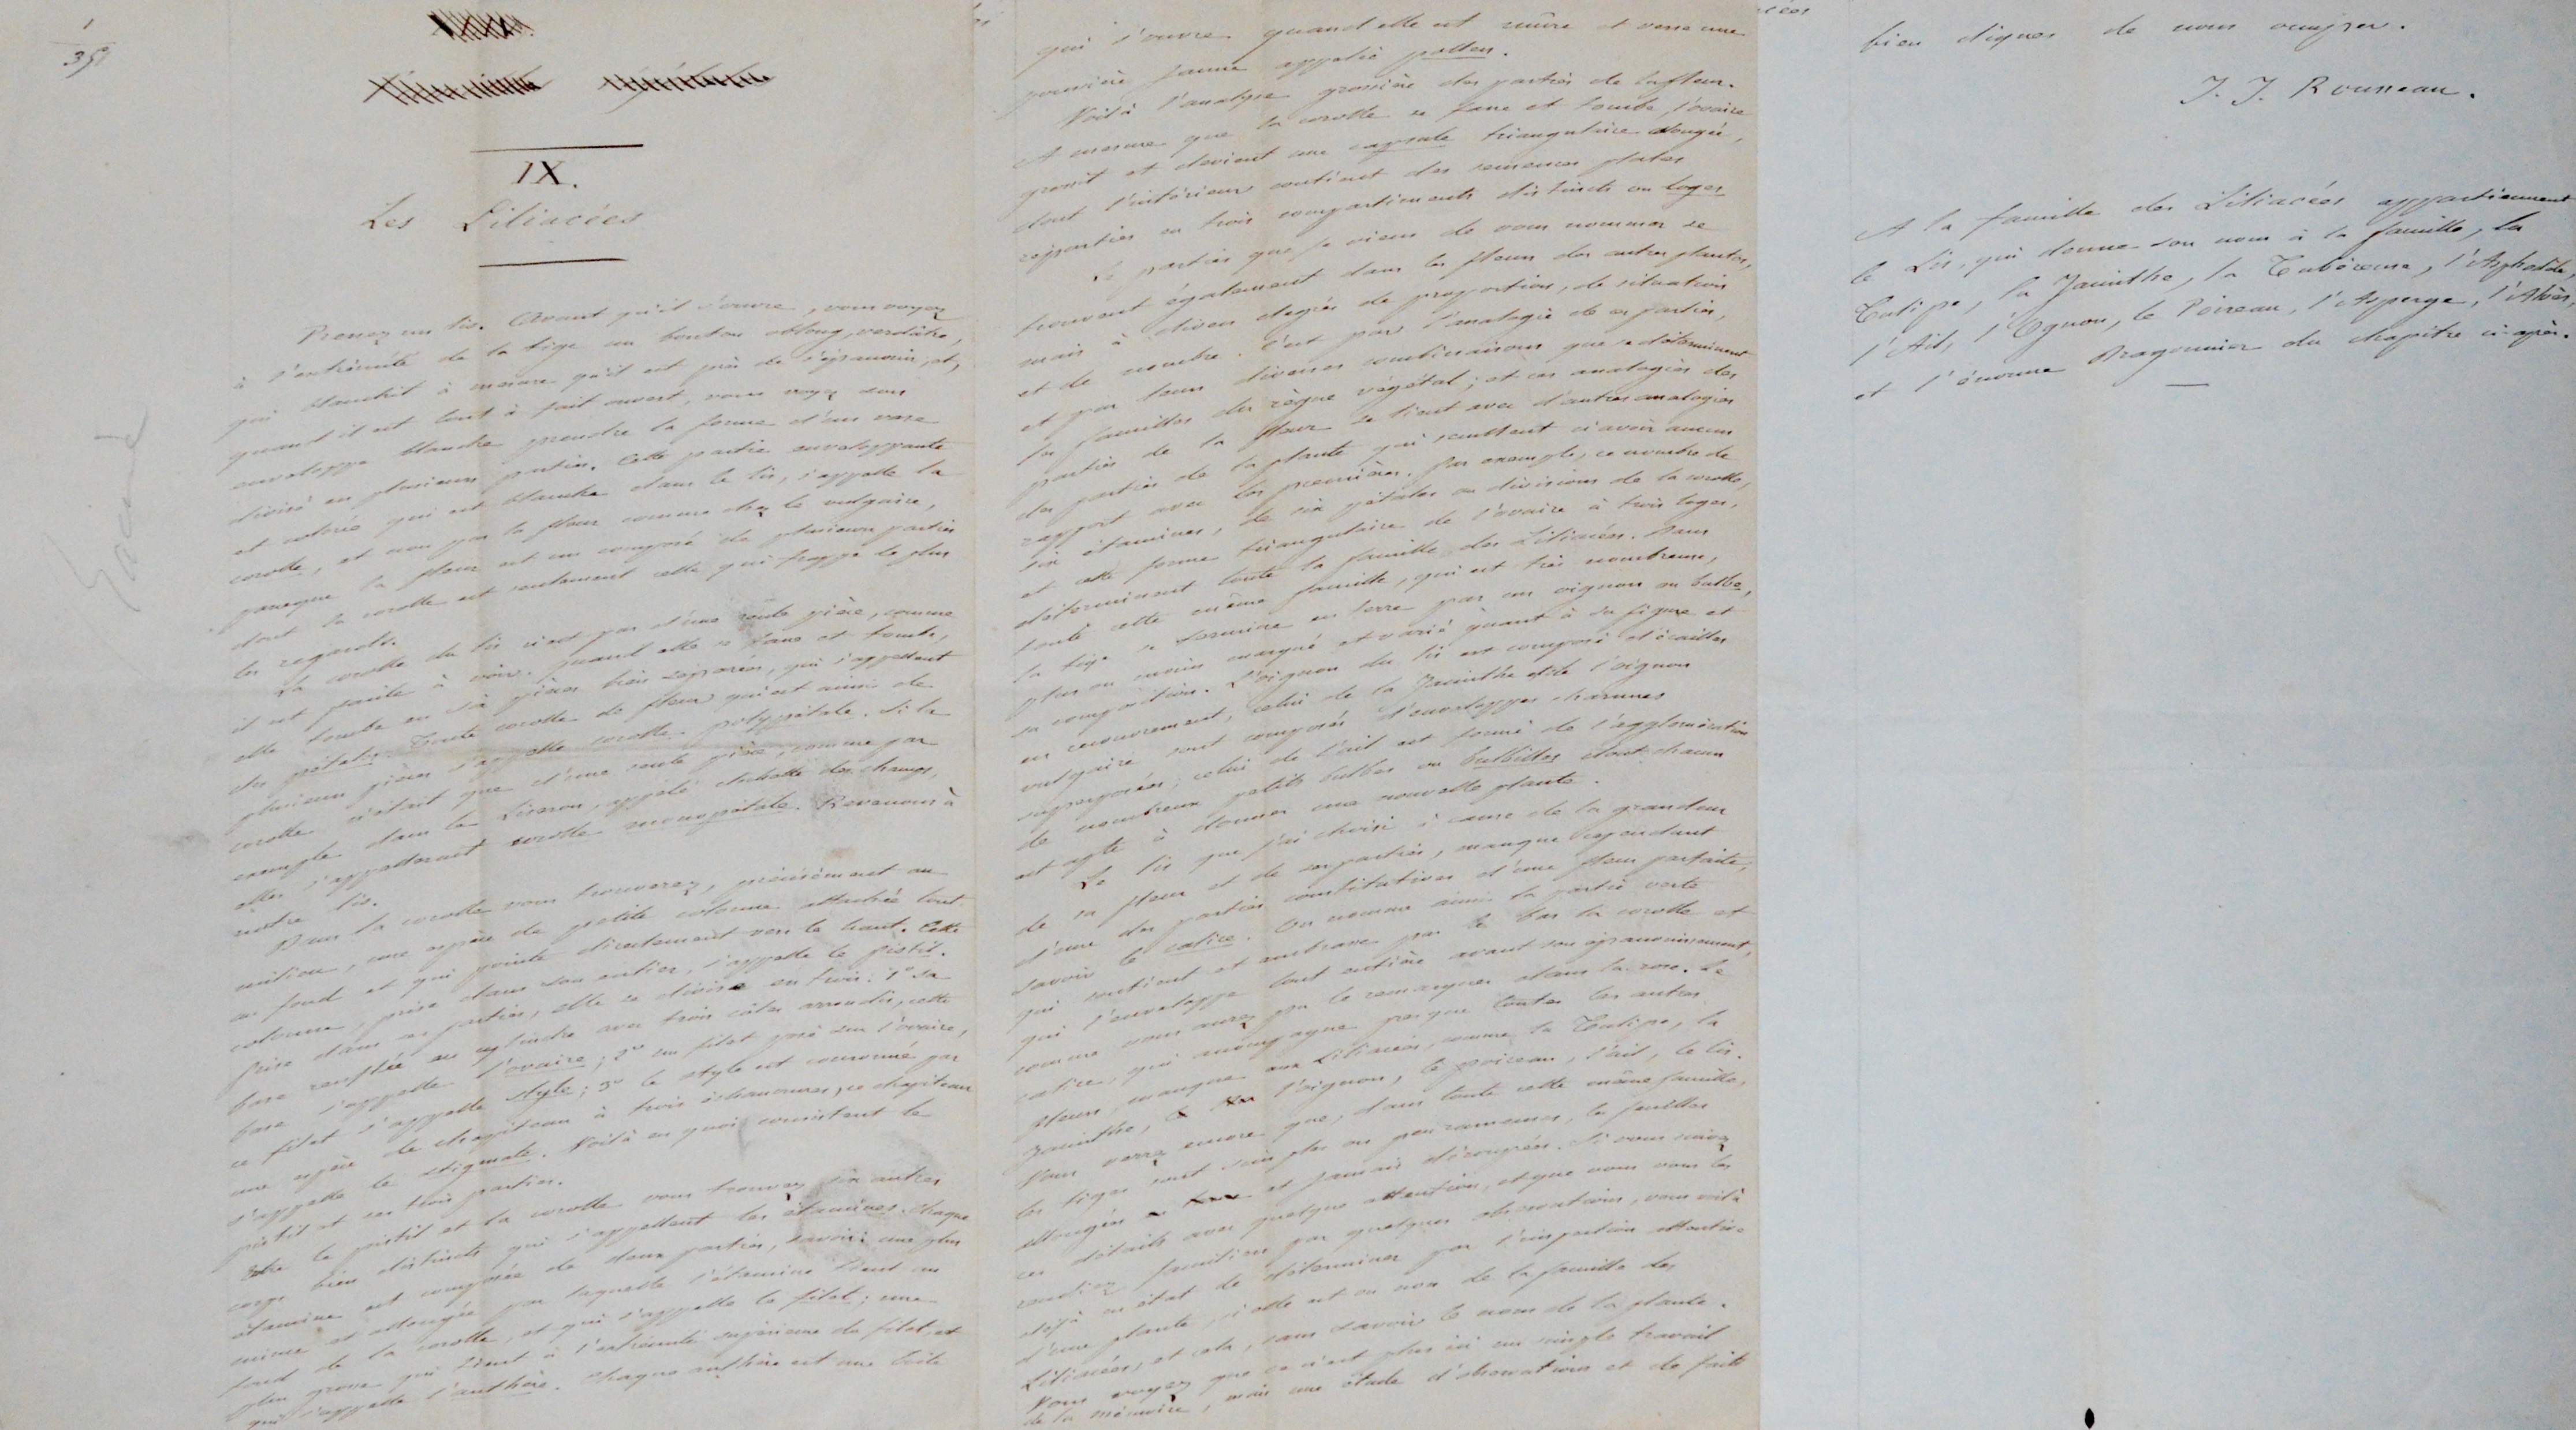 1
35
IX.
Les Liliacées
Prenez un lis. Avant qu'il s'ouvre, vous voyez
à l'extrémité de la tige un bouton oblong, verdâtre,
qui blanchit à mesure qu'il est près de s'épanouir, et,
quand il est tout à fait ouvert, vous voyez son
enveloppe blanche prendre la forme d'un vase
divisé en plusieurs parties. Cette partie enveloppante
et colorée qui est blanche dans le lis, s'appelle la
corolle, et non pas la fleur comme chez le vulgaire,
parceque la fleur est un composé de plusieurs parties
dont la corolle est seulement celle qui frappe le plus
les regards.
La corolle du lis n'est pas d'une seule pièce, comme
il est facile à voir. Quand elle se fane et tombe,
elle tombe en six pièces bien séparées, qui s'appellent
des pétales. Toute corolle de fleur qui est ainsi de
plusieurs pièces s'appelle corolle polypétale. Si la
corolle n'était que d'une seule pièce, comme par
exemple dans le Liseron, appelé clochette des champs,
elle s'appellerait corolle monopétale. Revenons à
notre lis.
Dans la corolle vous trouverez, précisément au
milieu, une espèce de petite colonne attachée tout
au fond et qui pointe directement vers le haut. Cette
colonne, prise dans son entier, s'appelle le pistil.
Prise dans ses parties, elle se divise en trois: 1º sa
base renflée en cylindre avec trois côtés arrondis, cette
base s'appelle l'ovaire; 2º un filet posé sur l'ovaire,
ce filet s'appelle style; 3º le style est couronné par
une espèce de chapiteau à trois échancrures, ce chapiteau
s'appelle le stigmate. Voilà en quoi consistent le
pistil et ses trois parties.
Entre le pistil et la corolle vous trouvez six autres
corps bien distincts qui s'appellent les étamines. Chaque
étamine est composée de deux parties, savoir: une plus
mince et allongée par laquelle l'étamine tient au
fond de la corolle, et qui s'appelle le filet; une
plus grosse qui tient à l'extrémité supérieure du filet, et
qui s'appelle l'anthère. Chaque anthère est une boîte
qui s'ouvre quand elle est mûre et verse une
poussière jaune appelée pollen.
Voilà l'analyse grossière des parties de la fleur.
A mesure que la corolle se fane et tombe, l'ovaire
grossit et devient une capsule triangulaire allongée,
dont l'intérieur contient des semences plates
réparties en trois compartiments distincts ou loges
Les parties que je viens de vous nommer se
trouvent également dans les fleurs des autres plantes,
mais à divers degrés de proportion, de situation
et de nombre. C'est par l'analogie de ces parties,
et par leurs diverses combinaisons que se déterminent
les familles du règne végétal; et ces analogies des
parties de la fleur se lient avec d'autres analogies
des parties de la plante qui semblent n'avoir aucun
rapport avec les premières. Par exemple, ce nombre de
six étamines, de six pétales ou divisions de la corolle,
et cette forme triangulaire de l'ovaire à trois loges,
déterminent toute la famille des Liliacées. Dans
toute cette même famille, qui est très nombreuse,
la tige se termine en terre par un oignon ou bulbe,
plus ou moins marqué et varié quant à sa figure et
sa composition. L'oignon du lis est composé d'écailles
en recouvrement, celui de la Jacinthe et de l'oignon
vulgaire sont composés d'enveloppes charnues
superposées; celui de l'ail est formé de l'agglomération
de nombreux petits bulbes ou bulbilles dont chacun
est apte à donner une nouvelle plante.
Le lis que j'ai choisi à cause de la grandeur
de sa fleur et de ses parties, manque cependant
d'une des parties constitutives d'une fleur parfaite,
savoir le calice. On nomme ainsi la partie verte
qui soutient et embrasse par le bas la corolle et
qui l'enveloppe tout entière avant son épanouissement,
comme vous aurez pu le remarquer dans la rose. Le
calice, qui accompagne presque toutes les autres
fleurs, manque aux Liliacées, comme la Tulipe, la
Jacinthe, l'oignon, le poireau, l'ail, le lis.
Vous verrez encore que, dans toute cette même famille,
les tiges sont simples ou peu rameuses, les feuilles
allongées et jamais découpées. Si vous suivez
ces détails avec quelque attention, et que vous vous les
rendiez familiers par quelques observations, vous voilà
déjà en état de déterminer par l'inspection attentive
d'une plante, si elle est ou non de la famille des
Liliacées, et cela, sans savoir le nom de la plante.
Vous voyez que ce n'est plus ici un simple travail
de la mémoire, mais une étude d'observations et de faits
bien dignes de nous occuper.
J. J. Rousseau.
A la famille des Liliacées appartiennent
le Lis, qui donne son nom à la famille, la
Tulipe, la Jacinthe, la Tubéreuse, l'Asphodèle,
l'Ail, l'Ognon, le Poireau, l'Asperge, l'Aloès,
et l'énorme Dragonnier du chapitre ci-après.